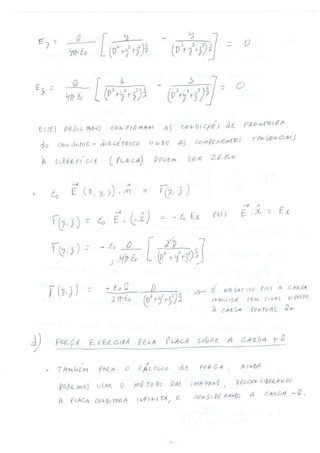 Ey = Q / 4πε₀ [ y / (D²+y²+z²)^3/2 - y / (D²+y²+z²)^3/2 ] = 0
Ez = Q / 4πε₀ [ z / (D²+y²+z²)^3/2 - z / (D²+y²+z²)^3/2 ] = 0
ESTES RESULTADOS CONFIRMAM AS CONDIÇÕES DE FRONTEIRA
DO CONDUTOR-DIELÉTRICO ONDE AS COMPONENTES TANGENCIAIS
À SUPERFÍCIE (PLACA) DEVEM SER ZERO
• ε₀ E⃗ (0, y, z) . n̂ = Γ(y, z)
Γ(y, z) = ε₀ E⃗ · (-x̂) = - ε₀ Ex POIS E⃗ . x̂ = Ex
Γ(y, z) = - ε₀ Q / 4πε₀ [ 2D / (D²+y²+z²)^3/2 ]
Γ(y, z) = -ε₀ Q / 2πε₀ D / (D²+y²+z²)^3/2 → É NEGATIVO POIS A CARGA
INDUZIDA TEM SINAL OPOSTO
À CARGA PONTUAL Q+
d) FORÇA EXERCIDA PELA PLACA SOBRE A CARGA +Q
• TAMBÉM PARA O CÁLCULO DE FORÇA, AINDA
PODEMOS USAR O MÉTODO DAS IMAGENS, DESCONSIDERANDO
A PLACA CONDUTORA INFINITA, E CONSIDERANDO A CARGA -Q.